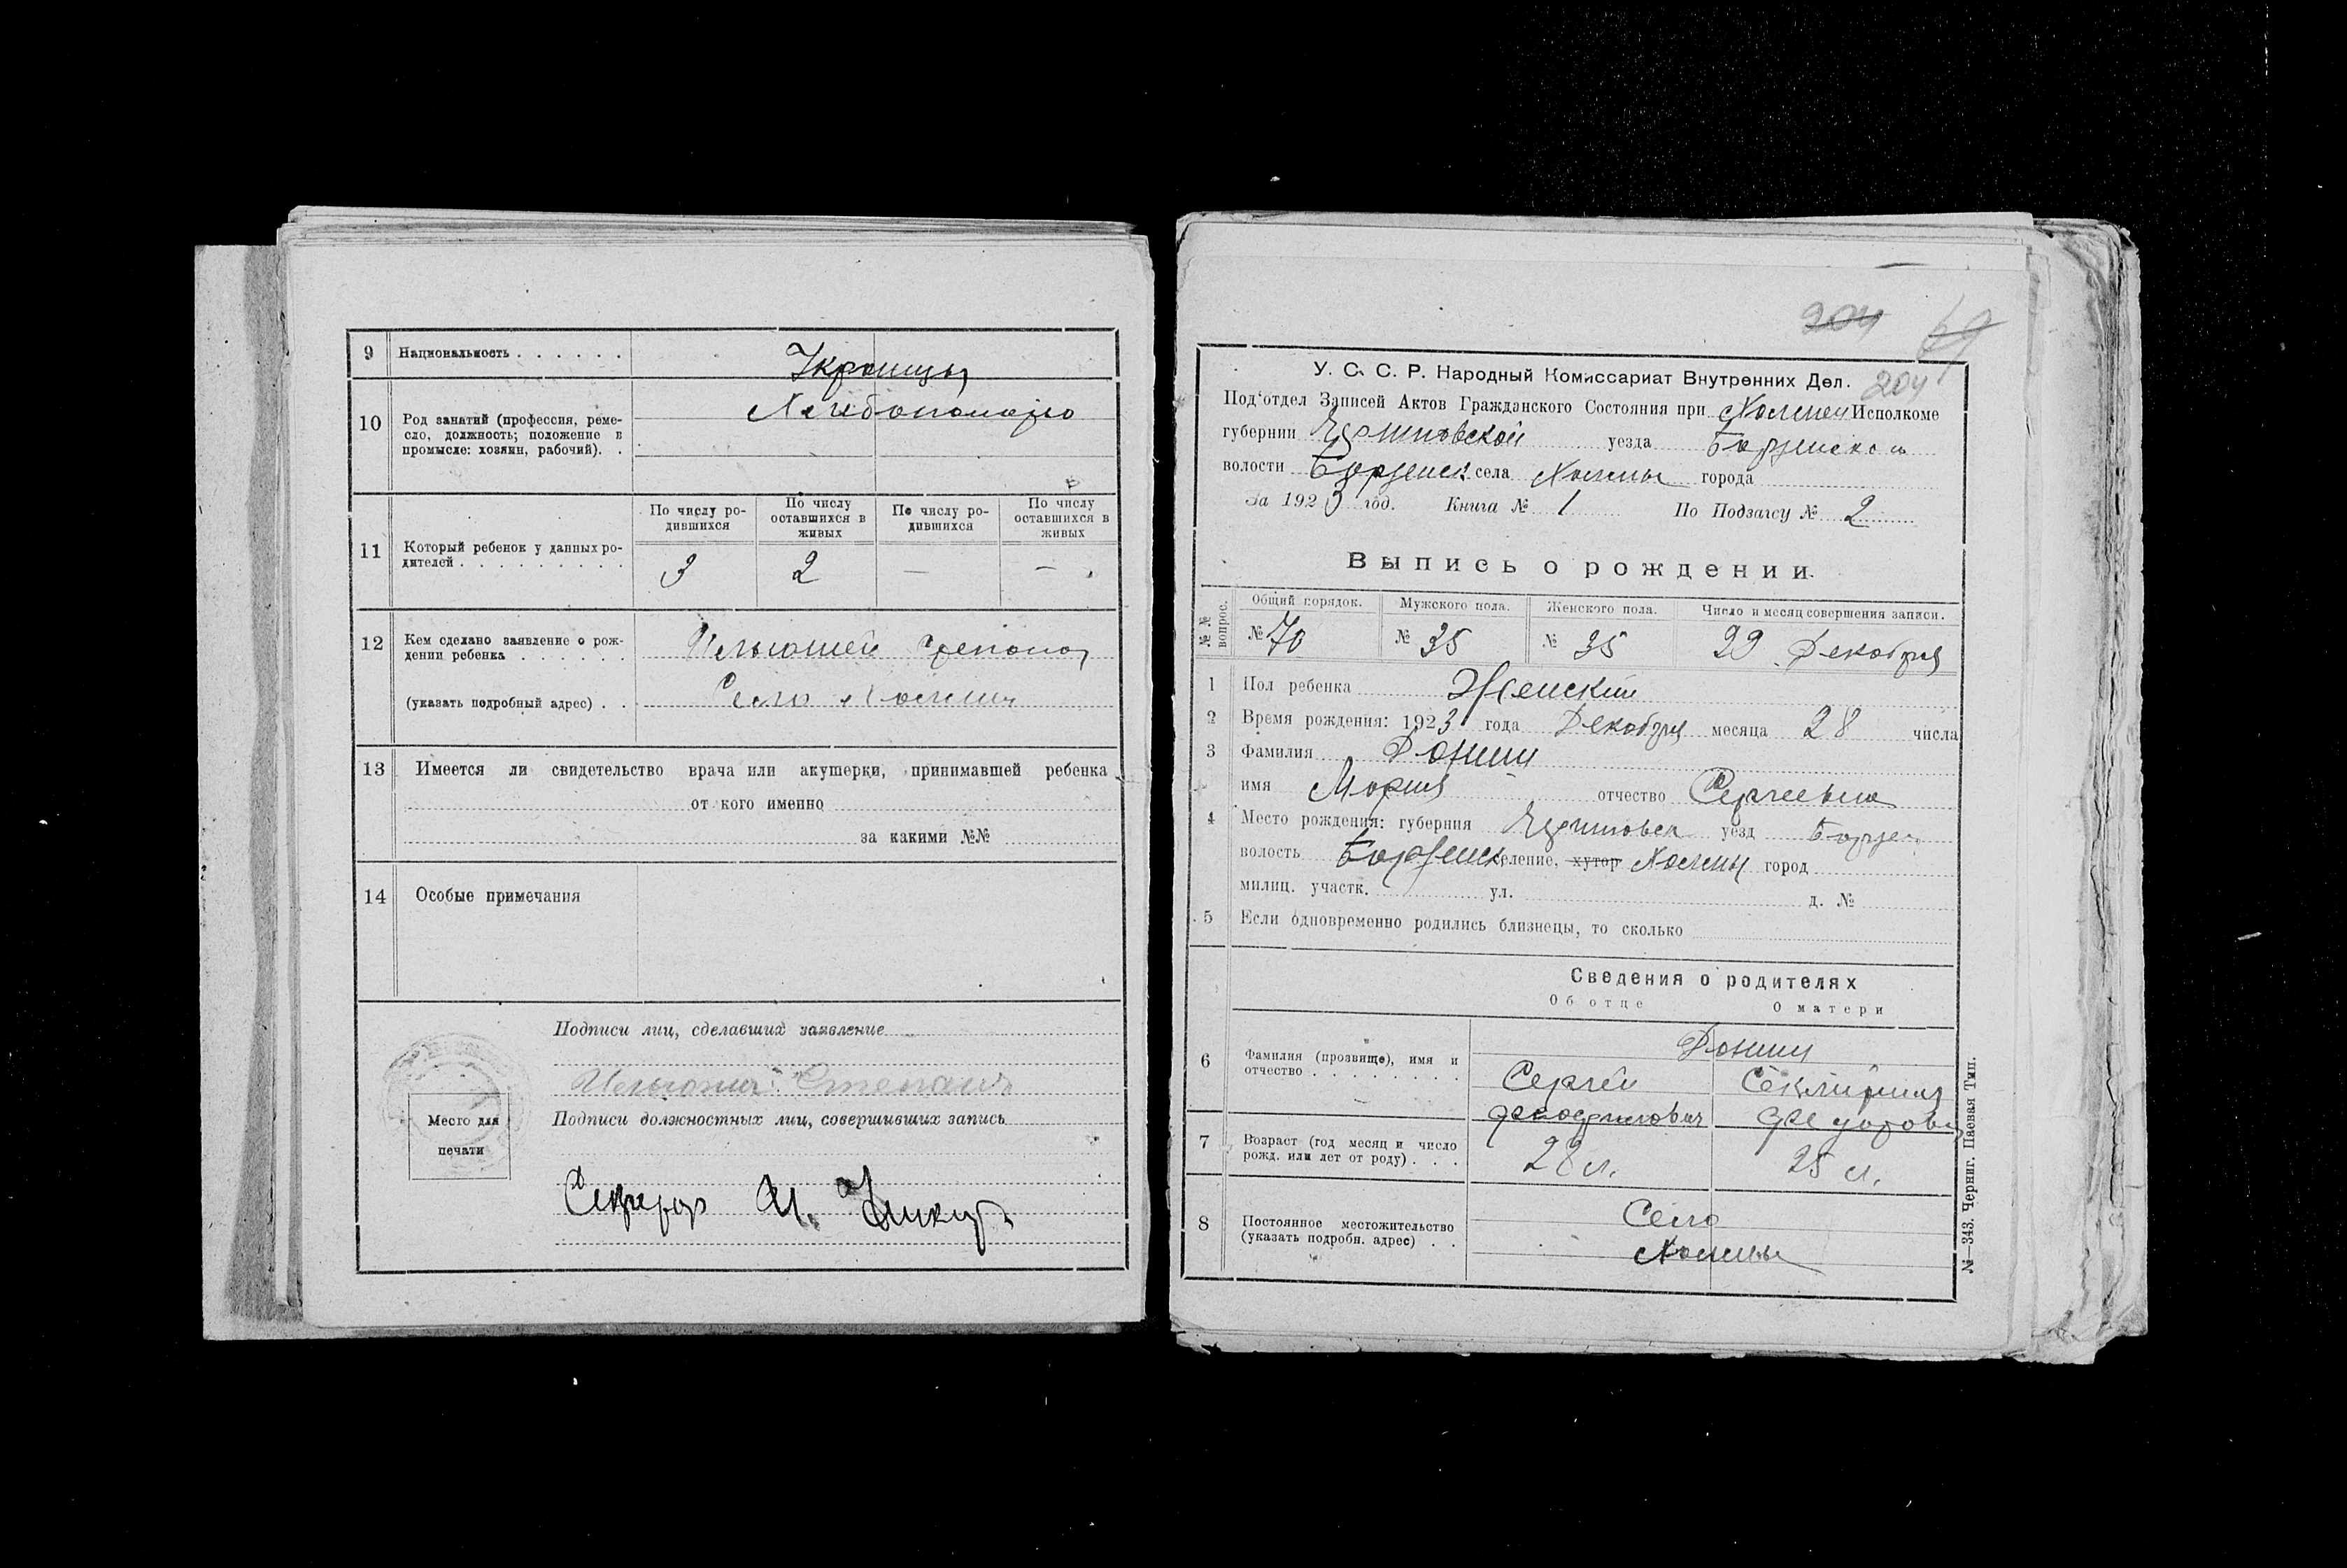 9 Национальность . . . . . . Украинцы
10 Род занятий (профессия, реме-
сло, должность; положение в
промысле: хозяин, рабочий). .
По числу ро-
дившихся
По числу
оставшихся в
живых
По числу ро-
дившихся
По числу
оставшихся в
живых
11 Который ребенок у данных ро-
дителей . . . . . . . . . 3 2 — —
12 Кем сделано заявление о рож-
дении ребенка . . . . . .
(указать подробный адрес) . . Село
13 Имеется ли свидетельство врача или акушерки, принимавшей ребенка
от кого именно
за какими №№
14 Особые примечания
Подписи лиц, сделавших заявление
Степан
Подписи должностных лиц, совершивших запись
Место для
печати
204 69
У. С. С. Р. Народный Комиссариат Внутренних Дел. 204
Под‘отдел Записей Актов Гражданского Состояния при Исполкоме
губернии Черниговской уезда Борзенского
волости Борзенск села города
За 1923 год. Книга № 1 По Подзагсу № 2
Выпись о рождении.
№ № вопрос.
Общий порядок. Мужского пола. Женского пола. Число и месяц совершения записи.
№ 70 № 35 № 35 29 Декабря
1 Пол ребенка Женский
2 Время рождения: 1923 года Декабря месяца 28 числа
3 Фамилия
имя Мария отчество Сергеевна
4 Место рождения: губерния Черниговск уезд Борзен.
волость Борзенск селение, хутор город
милиц. участк. ул. д. №
5 Если одновременно родились близнецы, то сколько
Сведения о родителях
Об отце О матери
6 Фамилия (прозвище), имя и
отчество . . . . . . . . . Сергей
7 Возраст (год месяц и число
рожд. или лет от роду) . . . 28 л. 25 л.
8 Постоянное местожительство
(указать подробн. адрес) . . Село
№—343. Черниг. Паевая Тип.